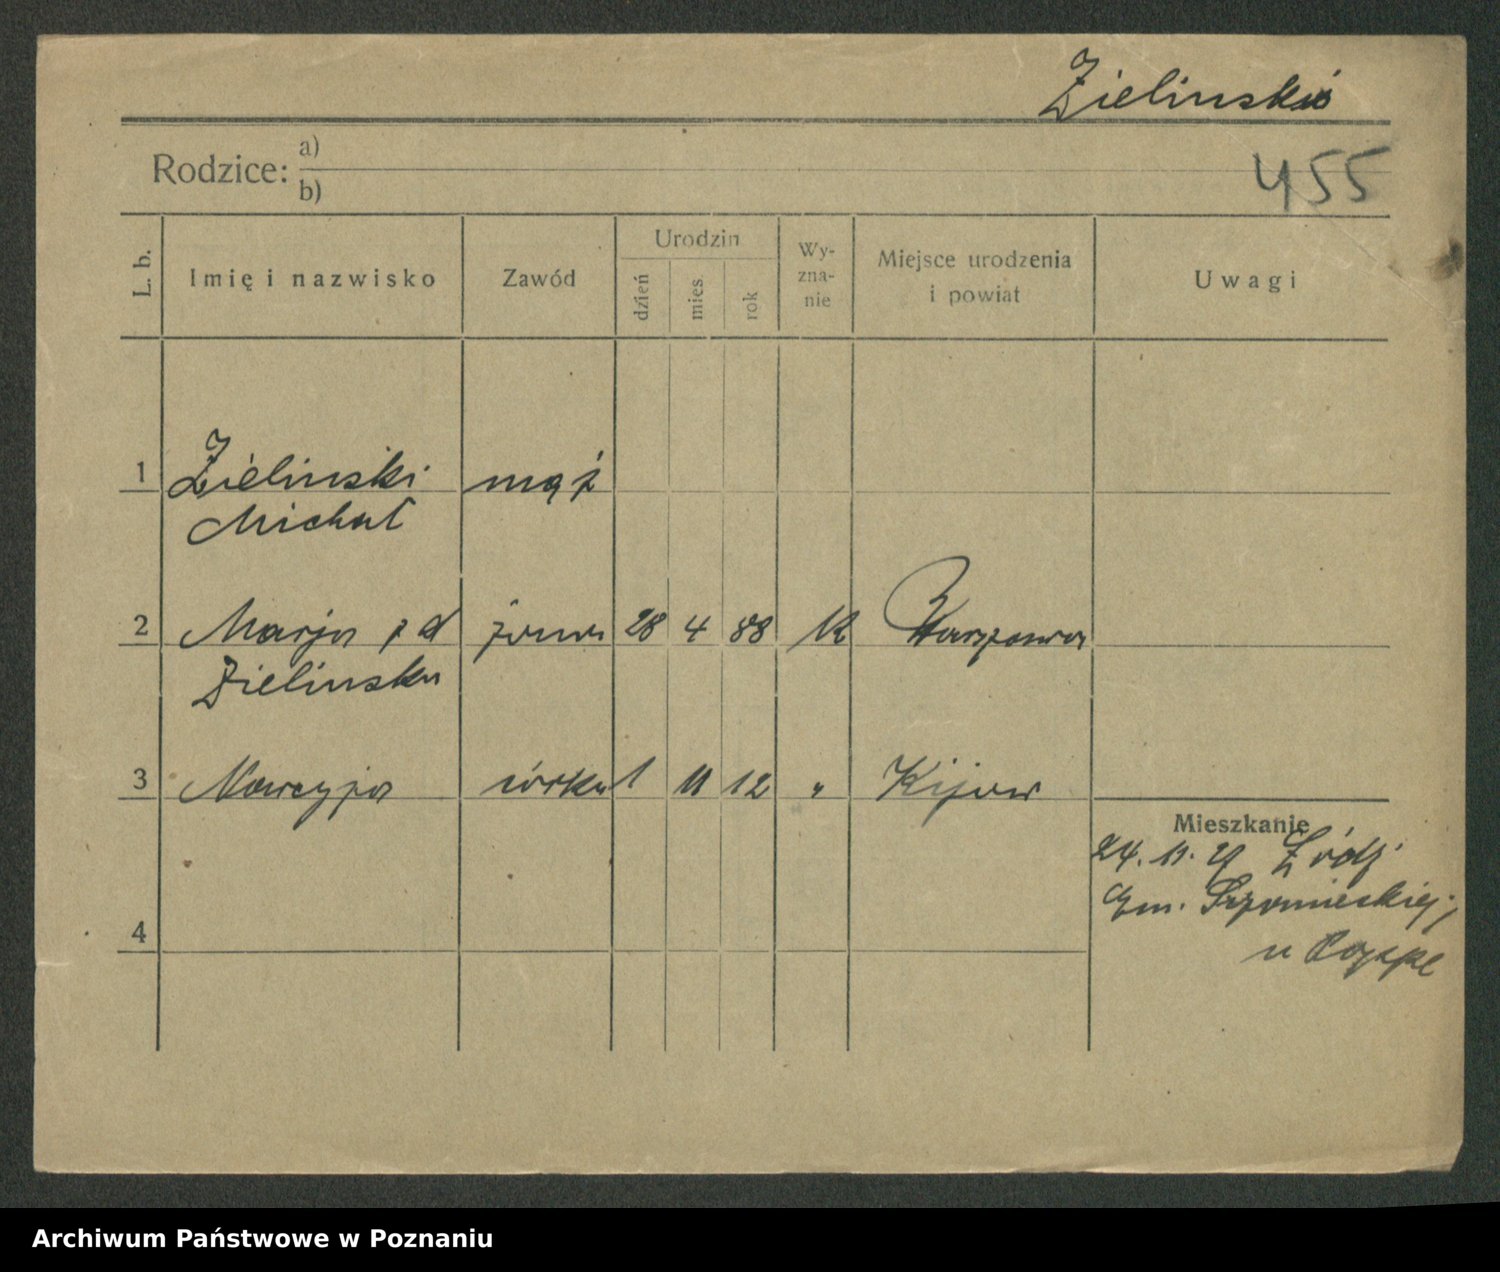 Zielinski
455
Rodzice: a)
b)
L. b.
Imię i nazwisko
Zawód
Urodzin
dzień
mies.
rok
Wy-
zna-
nie
Miejsce urodzenia
i powiat
Uwagi
1 Zielinski mąż
Michał
2 Marja z d żona 28 4 88 K Warszawa
Zielinska
3 córka 1 11 12 " Kijow
Mieszkanie
24. 11. Łódź
4
u
Archiwum Państwowe w Poznaniu